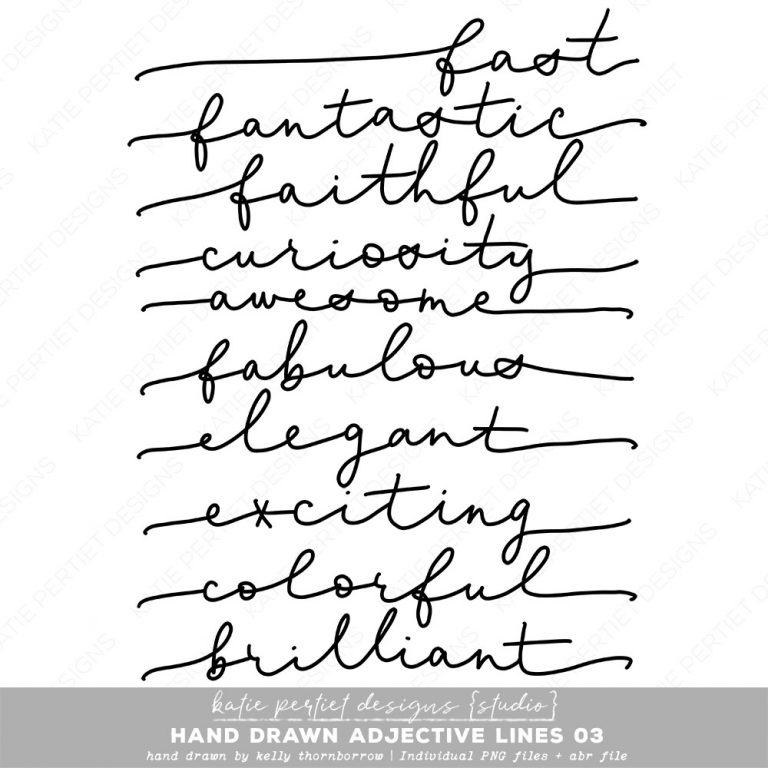 fast
fantastic
faithful
curiosity
awesome
fabulous
elegant
exciting
colorful
brilliant
katie pertiet designs {studio}
HAND DRAWN ADJECTIVE LINES 03
hand drawn by kelly thornborrow | Individual PNG files + abr file
KATIE PERTIET DESIGNS